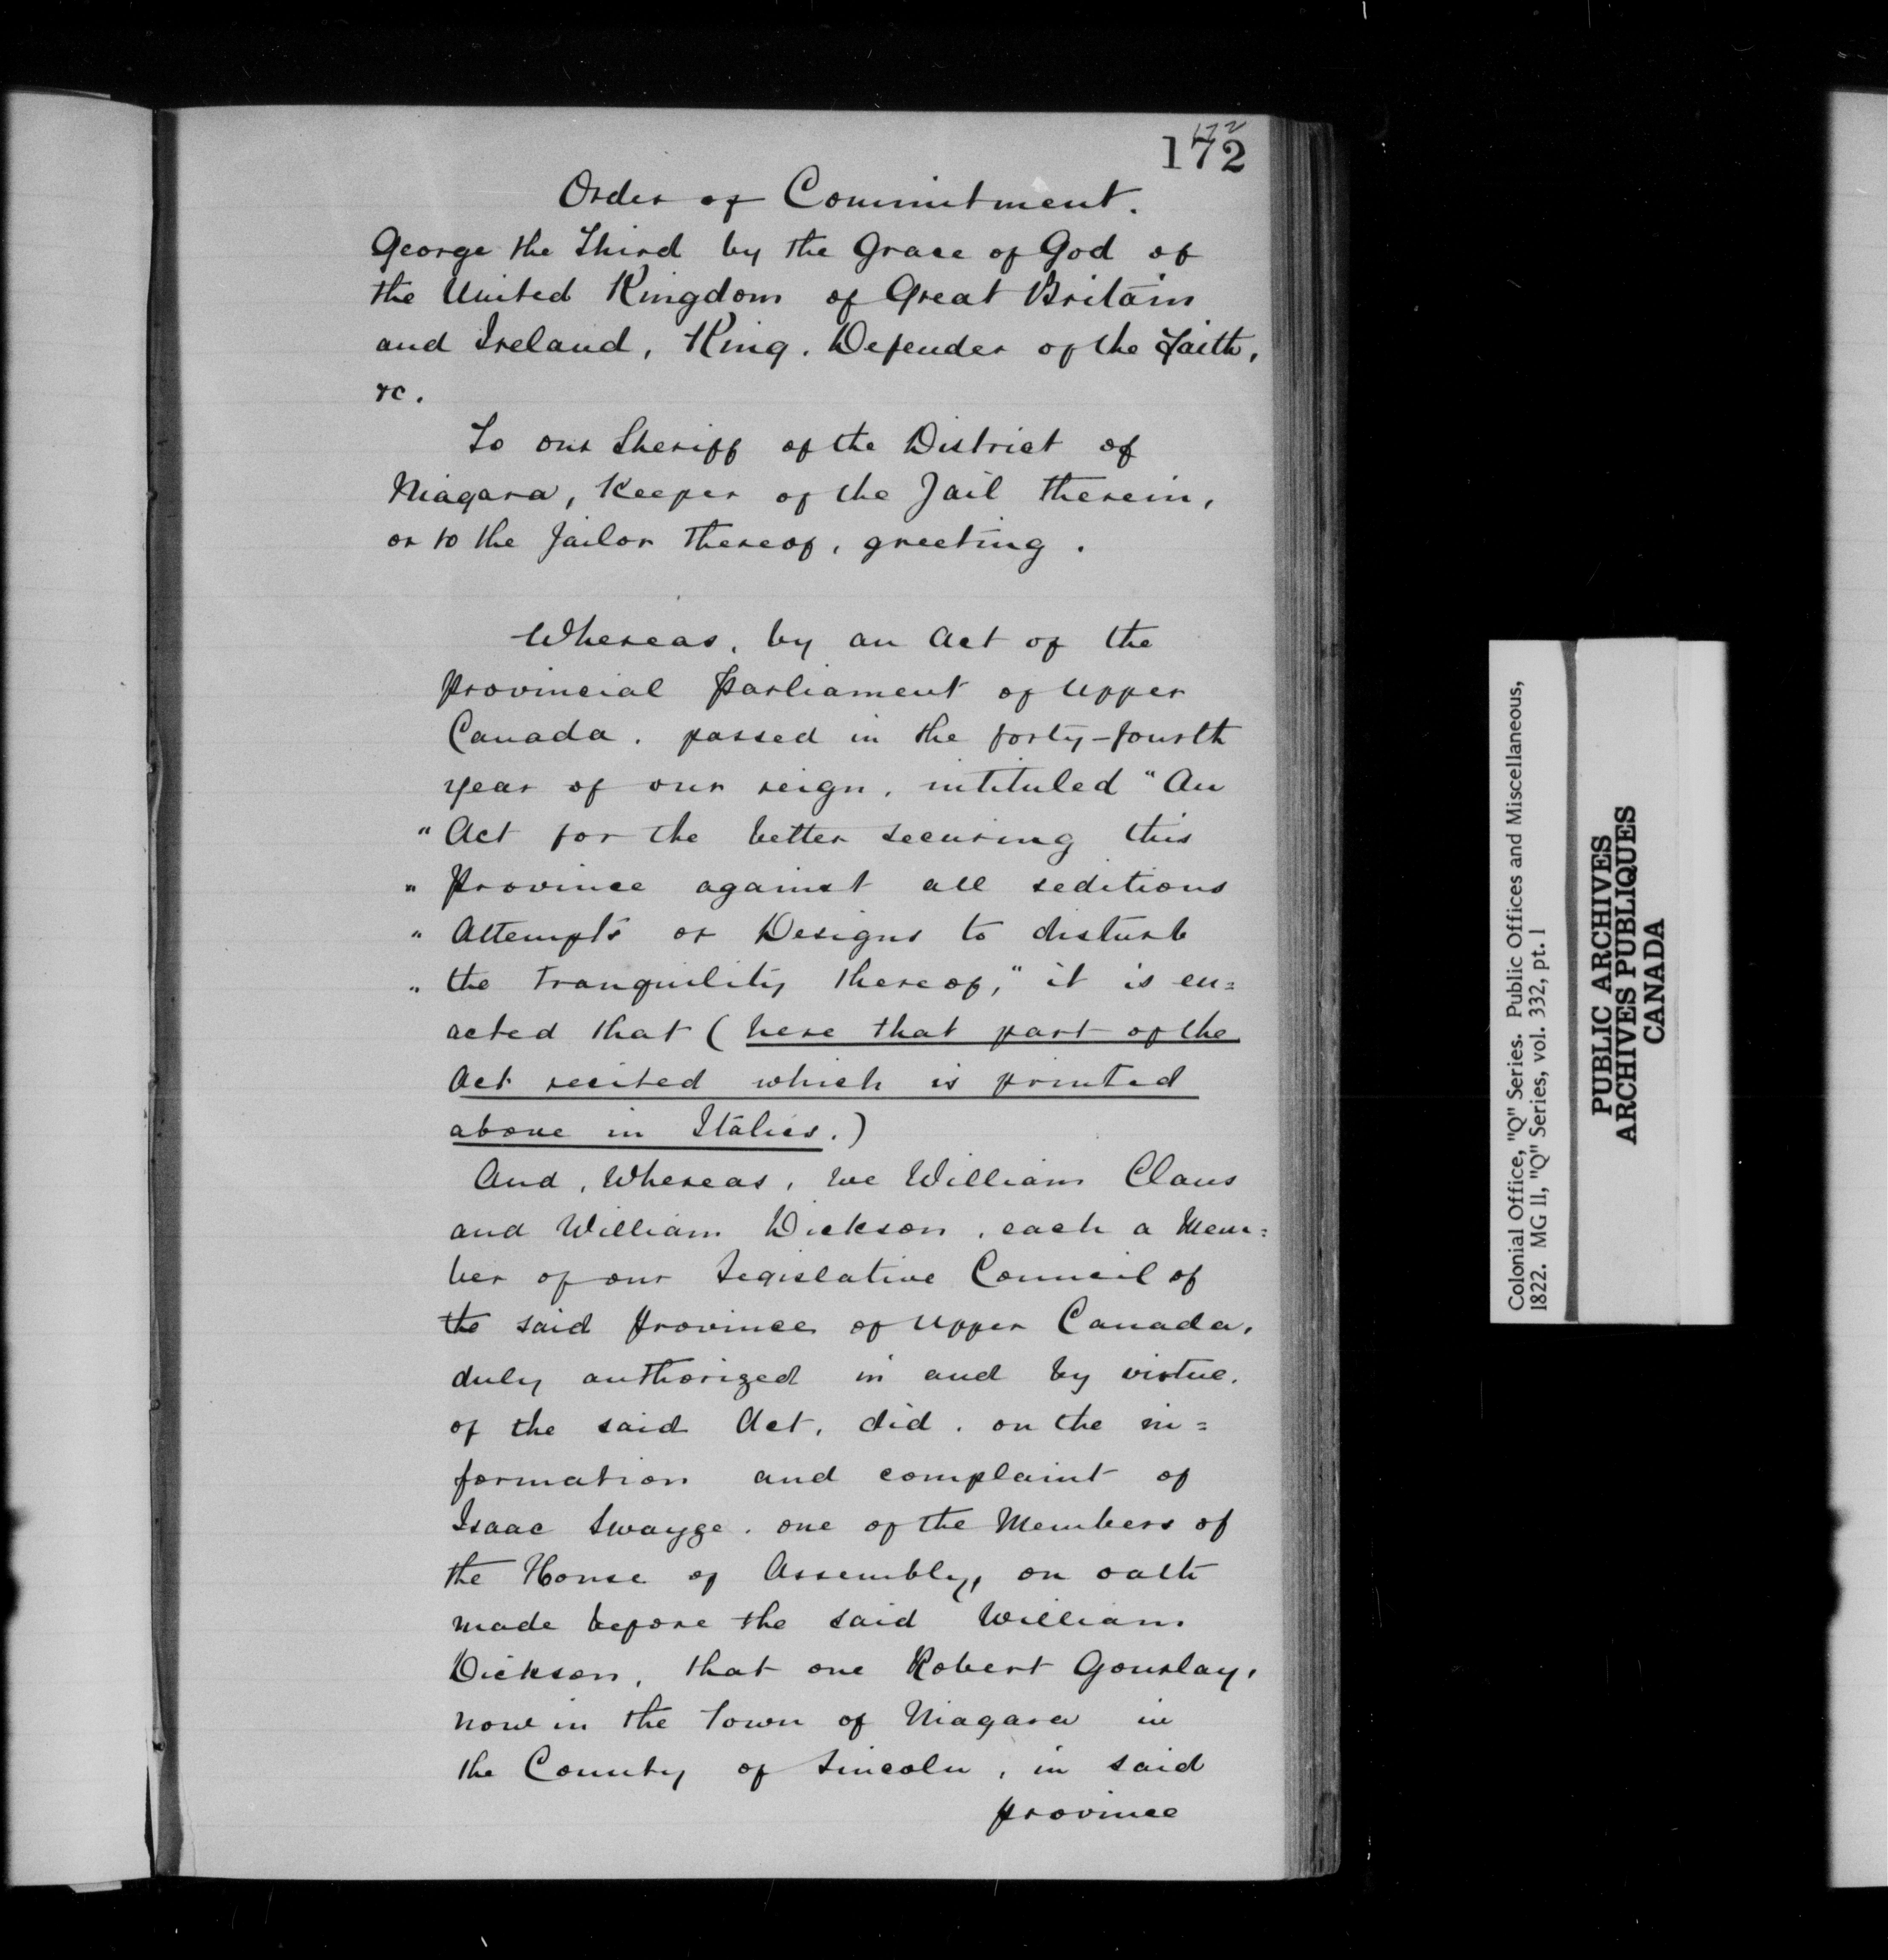 172
172
Order of Commitment.
George the Third by the Grace of God of
the United Kingdom of Great Britain
and Ireland, King, Defender of the Faith,
&c.
To our Sheriff of the District of
Niagara, Keeper of the Jail therein,
or to the Jailor thereof, greeting.
Whereas, by an Act of the
Provincial Parliament of Upper
Canada, passed in the forty-fourth
year of our reign, intituled "An
" Act for the better securing this
" Province against all seditious
" Attempts or Designs to disturb
" the tranquility thereof," it is en=
acted that (here that part of the
Act recited which is printed
above in Italics.)
And, Whereas, we William Claus
and William Dickson, each a Mem=
ber of our Legislative Council of
the said Province of Upper Canada,
duly authorized in and by virtue
of the said Act, did, on the in=
formation and complaint of
Isaac Swayze, one of the Members of
the House of Assembly, on oath
made before the said William
Dickson, that one Robert Gourlay,
now in the Town of Niagara in
the County of Lincoln, in said
Province
Colonial Office, "Q" Series. Public Offices and Miscellaneous,
1822. MG 11, "Q" Series, vol. 332, pt. 1
PUBLIC ARCHIVES
ARCHIVES PUBLIQUES
CANADA